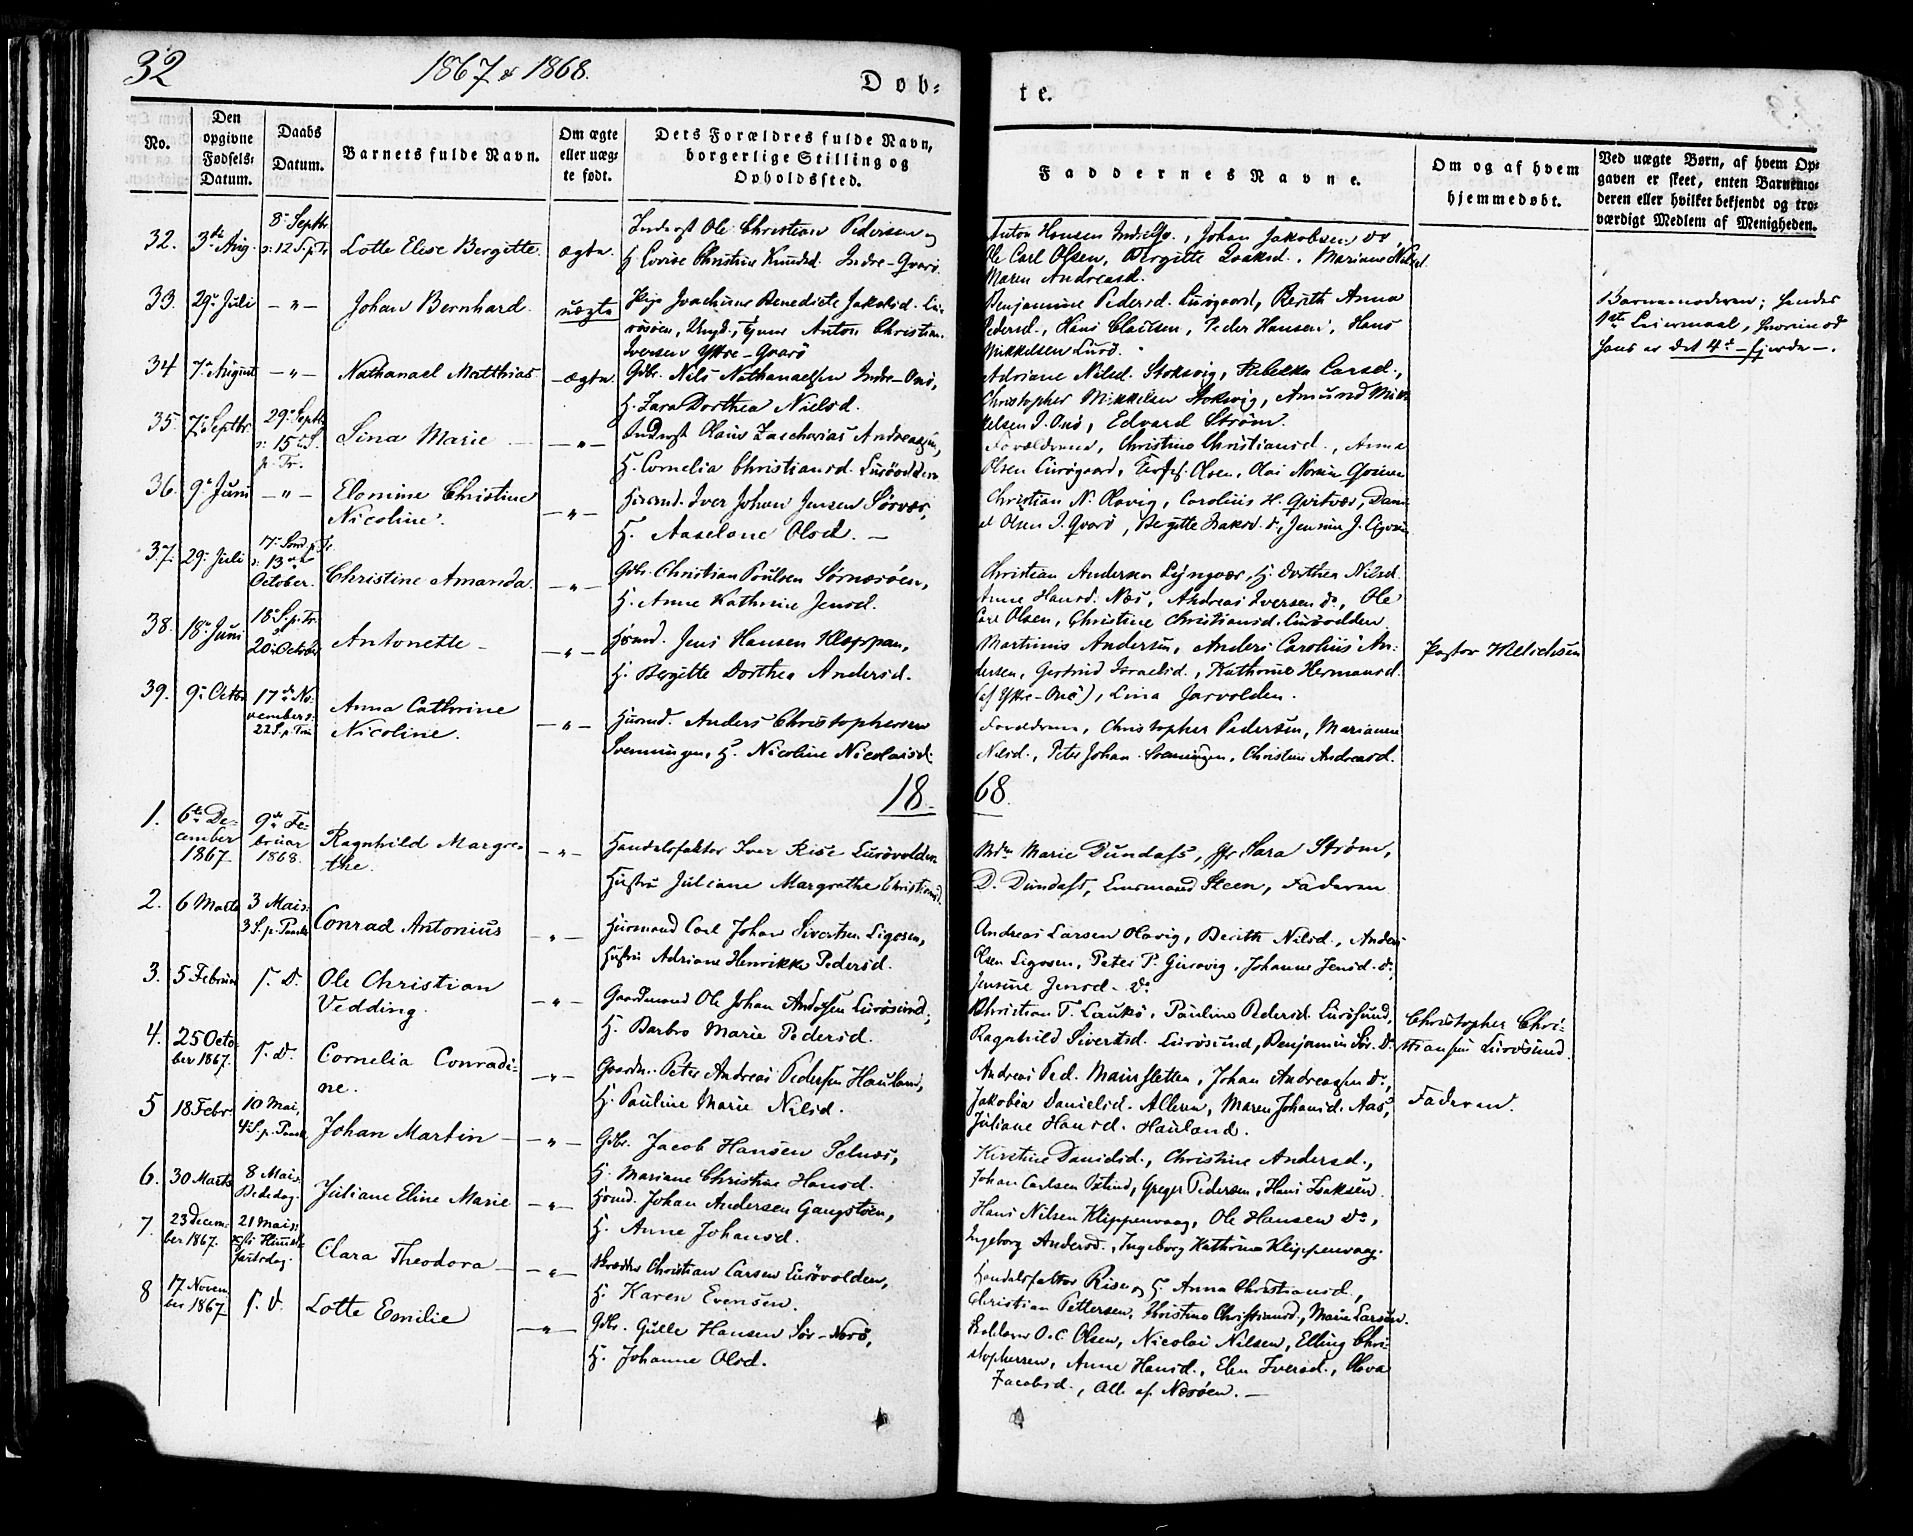 32
1867 & 1868.
Døb-
te.
No.
Den opgivne Fødsels-Datum.
Daabs Datum.
Barnets fulde Navn.
Om ægte eller uægte født.
Dets Forældres fulde Navn, borgerlige Stilling og Opholdssted.
Faddernes Navne.
Om og af hvem hjemmedøbt.
Ved uægte Børn, af hvem Opgaven er skeet, enten Barnemoderen eller hvilket bekjendt og troværdigt Medlem af Menigheden.
32.
3die Aug.
8. Septbr
12 S. p. Tr.
Lotte Elise Bergitte.
ægte.
Ole Christian Pedersen og
Christine Knudsd. Indre-Qvarø
Anton Hansen, Johan Jakobsen do,
Ole Carl Olsen, Bergitte Isaksd., Mariane Nilsd.
Maren Andreasd.
33.
29. Juli
-"-
Johan Bernhard.
uægte
Pige Joachime Benedicte Jakobsd.
Ungd., Anton Christian
Iversen Yttre-Qvarø
Benjamine Pedersd. Lurøgaard, Berith Anna
Pedersd., Hans Clausen, Peder Hansen, Hans
Mikkelsen Lurø.
Barnemoderen; hendes
1ste Leiermaal, hvorimod
hans er det 4de - fjerde -.
34
7. August
-"-
Nathanael Matthias
-ægte.
Gbr. Nils Nathanaelsen Indre-Onø,
H. Zara Dorthea Nielsd.
Adriane Nilsd. Stoksvig, Rebekka Larsd.,
Christopher Mikkelsen Stoksvig, Amund Mik-
kelsen I. Onø, Edvard Strøm.
35.
7. Septbr.
29. Septbr
15de S.
p. Tr.
Lina Marie
-"-
Olaus Zascharias Andreassen,
H. Cornelia Christiansd. Lurøvolden
Forældrene, Christine Christiansd., Anna
Olsen Lurøgaard, Olsen, Olai
36.
9. Juni
-"-
Elamine Christine
Nicoline.
-"-
Huusmd. Iver Johan Jensen Sørvær,
H. Aaselane Olsd. -
Christian N. Olavig, Carolius H. Qvitvær, Dani-
el Olsen I. Qvarø, Bergitte Isaksd. do, Jensine J.
37.
29. Juli
17. Sønd. p. Tr.
13de
October.
Christine Amanda.
-"-
Gbr. Christian Poulsen Sørnæsøen,
H. Anne Kathrine Jensd.
Christian Andersen Lyngvær, H. Dorthea Nilsd.
Anne Hansd. Næs, Andreas Iversen do, Ole
Carl Olsen, Christine Christiansd. Lurøvolden
38.
18. Juni
18. S. p. Tr.
20. October
Antonette -
-"-
Huusmd. Jens Hansen Kloppan,
H. Bergitte Dorthea Andersd.
Martinus Andersen, Anders Carolius An-
dersen, Gertrud Israelsd., Kathrine Hermansd.
(af Yttre-Onø), Lina Jarvolden.
Pastor
39.
9. Octbr
17de No-
vember
22 S. p. Trin
Anna Cathrine
Nicoline.
-"-
Huusmd. Anders Christophersen
Svenningen, H. Nicoline Nicolaisd.
Forældrene, Christopher Pedersen, Mariane
Nilsd., Peter Johan Svenningen, Christine Andreasd.
18
68.
1.
6te De-
cember
1867
9de Fe-
bruar
1868.
Ragnhild Margre-
the.
-"-
Handelsfaktor Iver Rise Lurøvolden
Hustru Juliane Margrethe Christiansd.
Mdm Marie Dundass, Jfr Sara Strøm,
D. Dundass, Steen, Faderen
2.
6 Marts
3 Mai:
3 S. p. Paaske
Conrad Antonius
-"-
Huusmand Carl Johan Sivertsen Ligosen,
Hustru Adriane Henrikke Pedersd.
Andreas Larsen Olavig, Berith Nilsd., Anders
Olsen Ligosen, Peter P. Girsvig, Johanne Jensd. do,
Jensine Jensd. do
3.
5 Februar
s. D.
Ole Christian
Vedding.
-"-
Gaardmand Ole Johan Andersen Lurøsund,
H. Barbro Marie Pedersd.
Christian T. Laukø, Pauline Pedersd. Lurøsund,
Ragnhild Sivertsd. Lurøsund, Benjamin Sør. do
Christopher Chri-
stiansen Lurøsund.
4.
25 Octo-
ber 1867.
s. D.
Cornelia Conradi-
ne.
-"-
Gaardm. Peter Andreas Pedersen Hauland,
H. Pauline Marie Nilsd.
Andreas Ped. Maursletten, Johan Andreassen do,
Jakobea Danielsd. Alleren, Maren Johansd. Aas,
Juliane Hansd. Hauland.
Faderen.
5
18 Febr
10 Mai,
4 S. p. Paaske
Johan Martin -
-"-
Gbr. Jacob Hansen Selnæs,
H. Mariane Christine Hansd.
Kirstine Danielsd., Christine Andersd.,
Johan Carlsen Østind, Greger Pedersen, Hans Isaksen
6.
30 Marts
8 Mai:
Bededag.
Juliane Eline Marie
-"-
Huusmd. Johan Andersen Gangstøen,
H. Anne Johansd.
Hans Nilsen Klippenvaag, Ole Hansen do,
Ingeborg Andersd., Ingeborg Kathrine Klippenvaag.
7.
23 Decem-
ber 1867.
21 Mai:
Himmel-
fartsdag.
Clara Theodora -
-"-
Skrædder Christian Larsen Lurøvolden,
H. Karen Evensen.
Handelsfaktor Rise og H. Anna Christiansd.,
Christian Pettersen, Christine Christiansd., Marie Larsen.
8
17 Novem-
ber 1867
s. d.
Lotte Emilie
-"-
Gbr. Gulle Hansen Sør-Næsø,
H. Johanne Olsd.
O. C. Olsen, Nicolai Nilsen, Elling Chri-
stophersen, Anne Hansd., Elen Iversd., Olava
Jacobsd., Alle af Næsøen. -